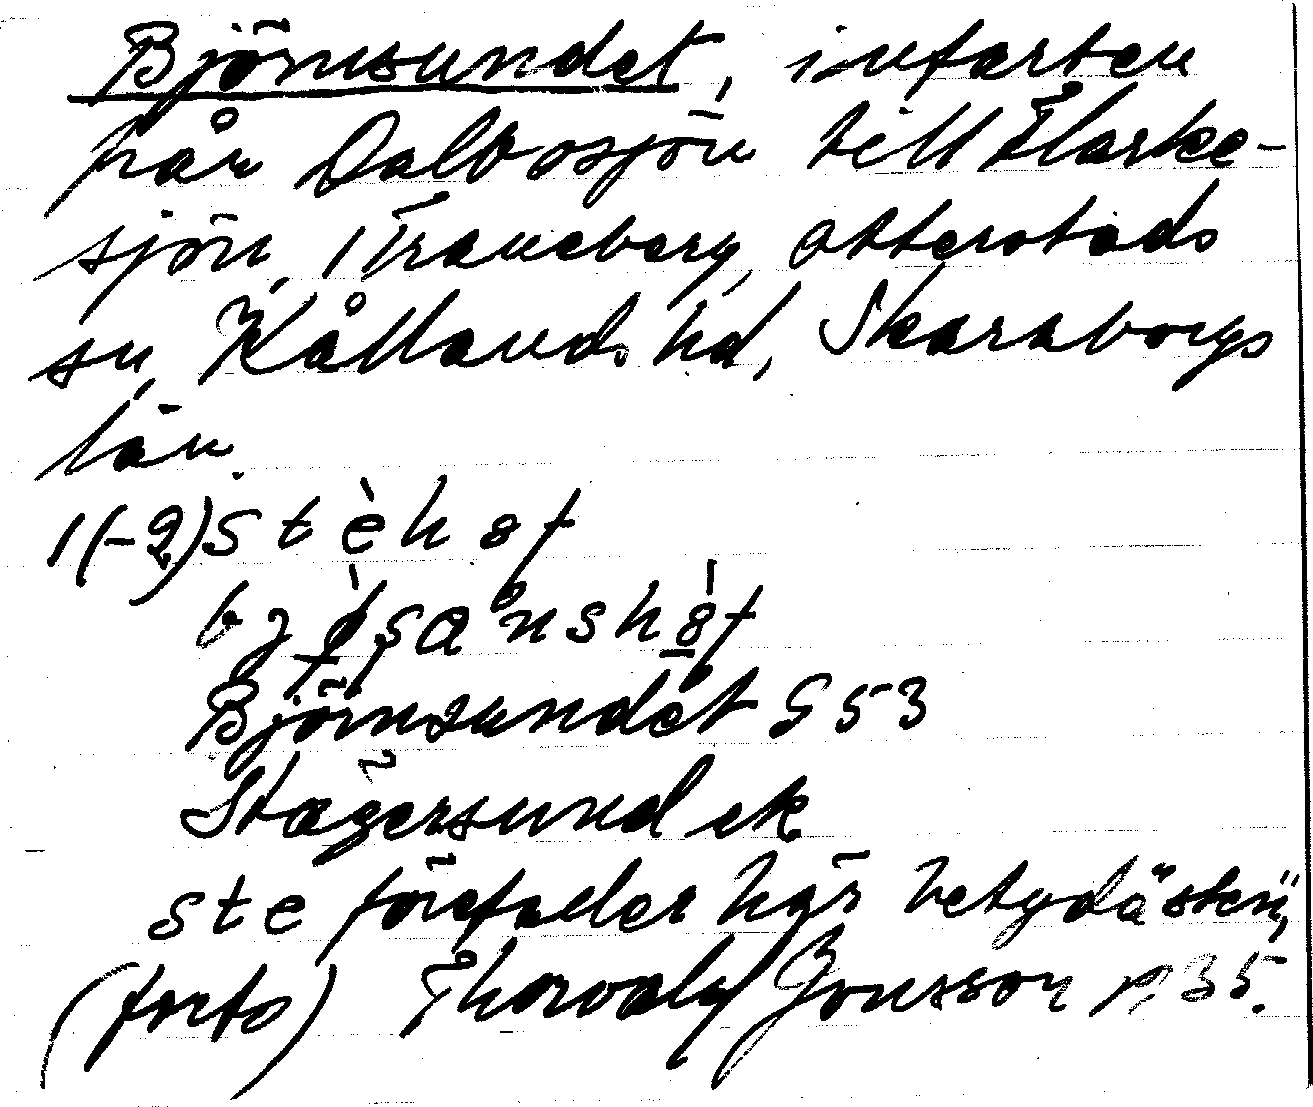 Björnsundet, infarten
från Dalbosjön till Ekarke-
sjön, i Traneberg, Otterstads
sn, Kållands hd, Skaraborgs
län.
1(-2) stèhsf
Björnsundet G53
Stagersund ek
ste förefaller här betyda "sten",
(forts) Thorvald Jonsson p. 35.